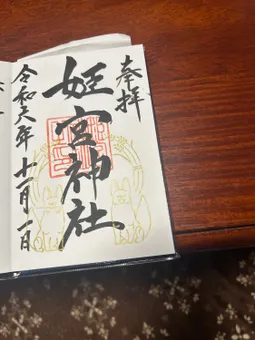 奉拝
姫宮神社
令和六年十一月一日